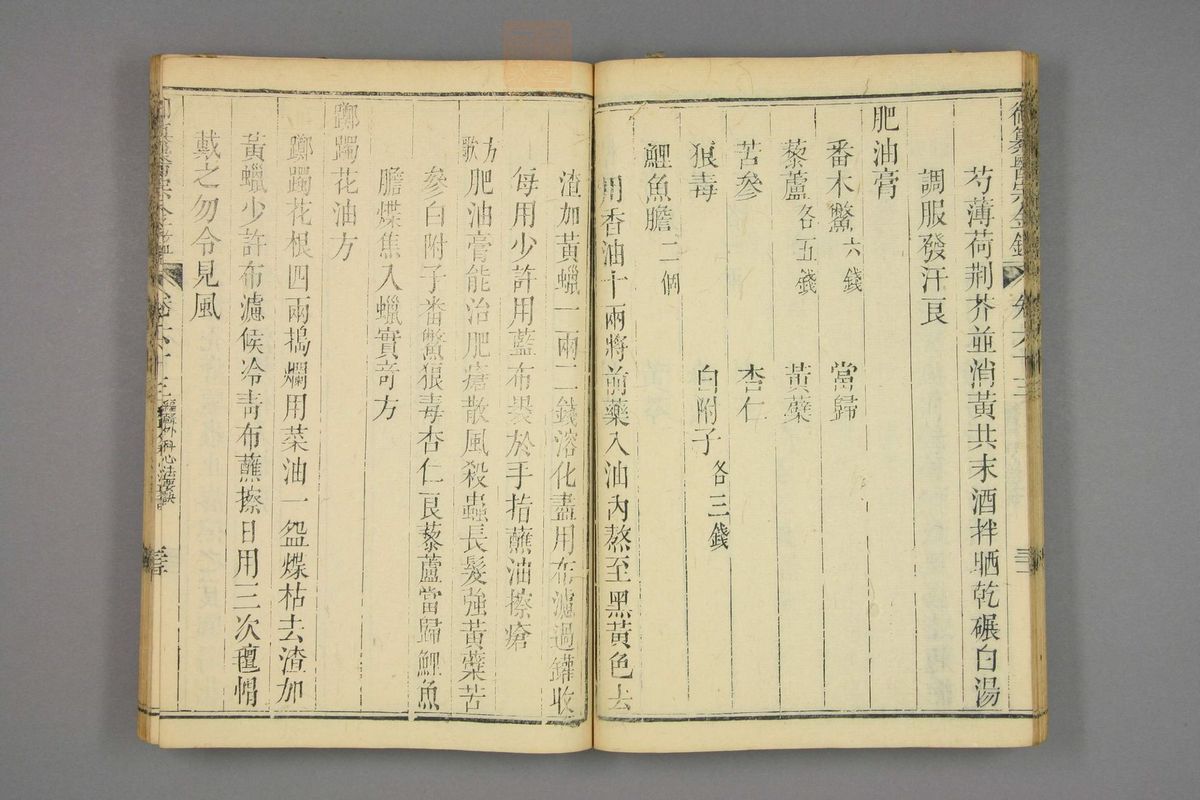 御纂醫宗金鑑 卷六十三
芍薄荷荆芥並消黃共末酒拌晒乾碾白湯
調服發汗良
肥油膏
番木鱉六錢 當歸
藜蘆各五錢 黃蘗
苦參 杏仁
狼毒 白附子各三錢
鯉魚膽二個
用香油十兩將前藥入油內熬至黑黃色去
渣加黃蠟一兩二錢溶化盡用布濾過罐收
每用少許用藍布裹於手指蘸油擦瘡
方歌 肥油膏能治肥瘡散風殺蟲長髮強黃蘗苦
參白附子番鱉狼毒杏仁良藜蘆當歸鯉魚
膽煠焦入蠟實奇方
躑躅花油方
躑躅花根四兩搗爛用菜油一盌煠枯去渣加
黃蠟少許布濾候冷青布蘸擦日用三次氊帽
戴之勿令見風
卷六十三 編輯外科心法要訣